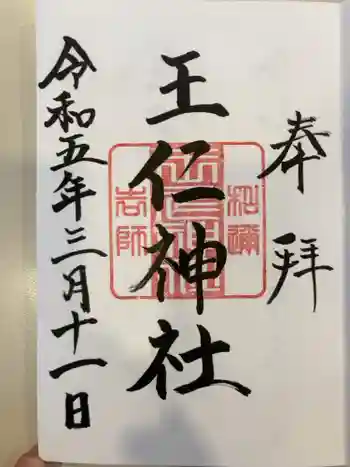 奉拝
王仁神社
令和五年三月十一日